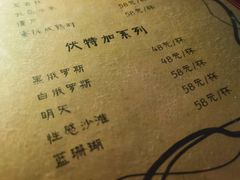 58元/杯
伏特加系列
黑俄罗斯 48元/杯
白俄罗斯 48元/杯
明天 58元/杯
性感沙滩 58元/杯
蓝珊瑚 58元/杯